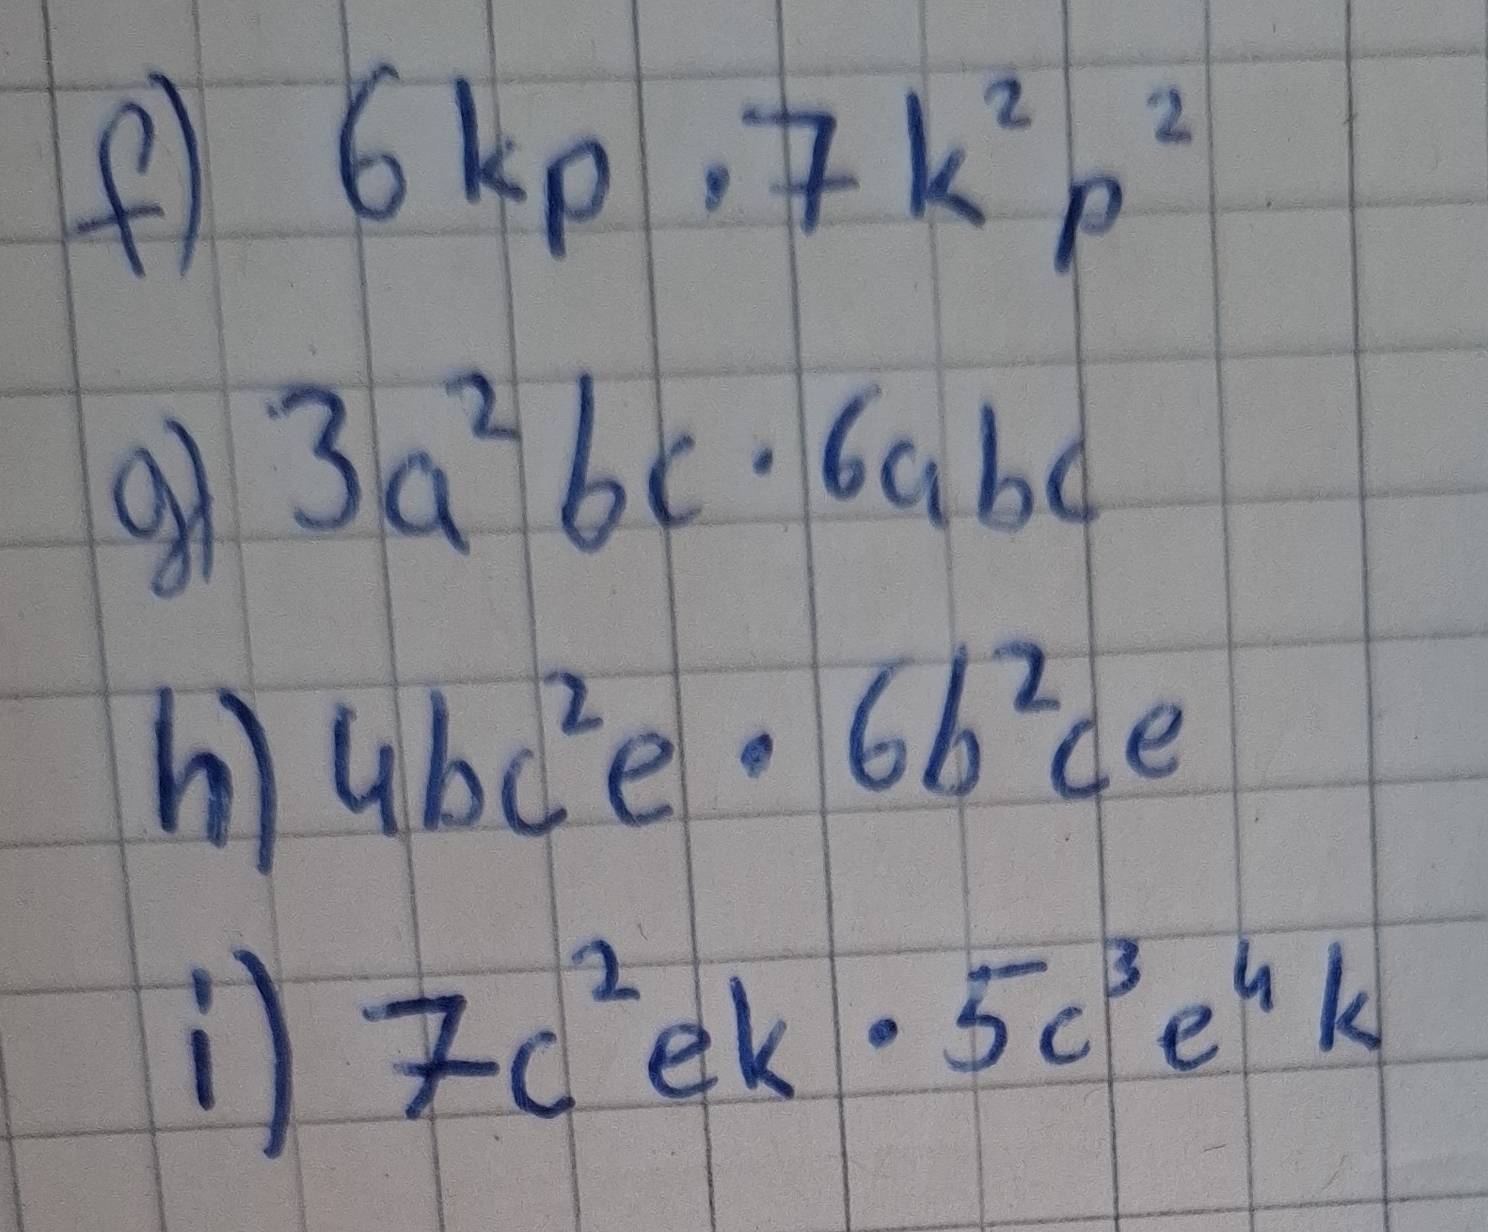 f) 6kp · 7k²p²
g) 3a²bc · 6abc
h) 4bc²e · 6b²ce
i) 7c²ek · 5c³e⁴k